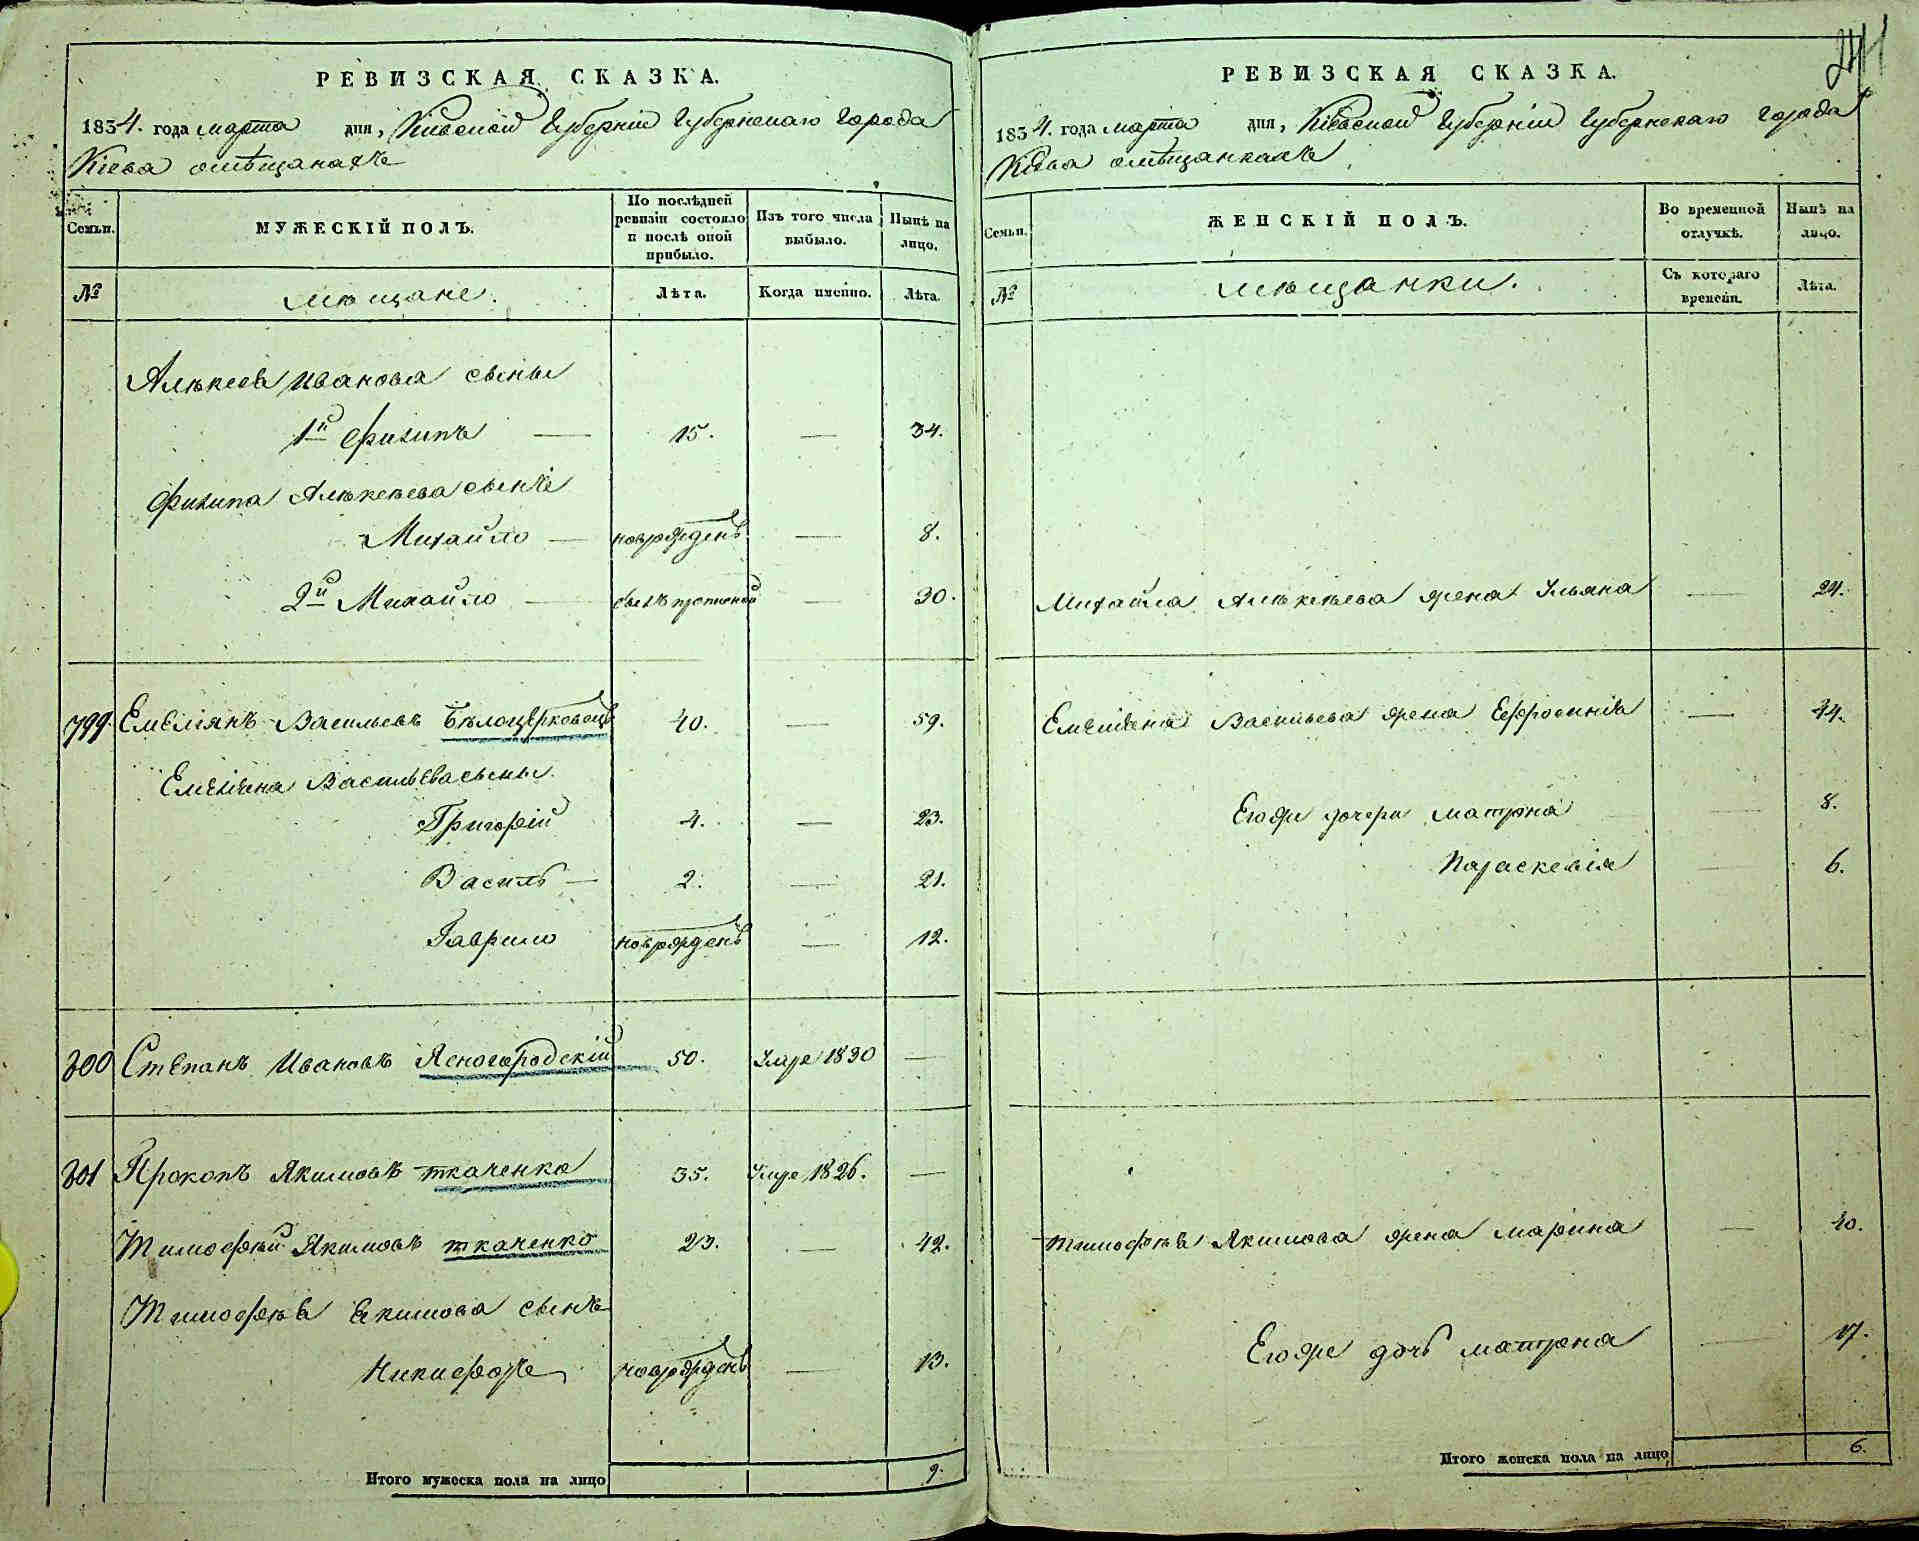 241
РЕВИЗСКАЯ СКАЗКА.
1834. года марта дня, Кіевской Губерніи Губернскаго Города
Кіева омѣщанахъ
Семьи.
МУЖЕСКІЙ ПОЛЪ.
По послѣдней ревизіи состояло и послѣ оной прибыло.
Изъ того числа выбыло.
Нынѣ на лицо.
№
мѣщане.
Лѣта.
Когда именно.
Лѣта.
Алѣксѣя Иванова сыны
1й Филипъ — 15. — 34.
Филипа Алѣксѣева сынъ
Михайло — новорожденъ — 8.
2й Михайло — былъ прописной — 30.
799. Емеліянъ Васильевъ Бѣлоцерковецъ 40. — 59.
Емеліяна Васильева сыны
Григорій 4. — 23.
Василь — 2. — 21.
Гаврило новорожденъ — 12.
800 Степанъ Ивановъ Ясногородскій 50. Умре 1830 —
801 Прокопъ Якимовъ ткаченко 35. Умре 1826. —
Тимофѣй Якимовъ ткаченко 23. — 42.
Тимофѣя Якимова сынъ
Никифоръ новорожденъ — 13.
Итого мужеска пола на лицо 9.
РЕВИЗСКАЯ СКАЗКА.
1834. года марта дня, Кіевской Губерніи Губернскаго Города
Кіева омѣщанкахъ
Семьи.
ЖЕНСКІЙ ПОЛЪ.
Во временной отлучкѣ.
Нынѣ на лицо.
№
мѣщанки.
Съ котораго времени.
Лѣта.
Михайла Алѣксѣева жена Ульяна — 24.
Емеліяна Васильева жена Ефросинія — 44.
Егоже дочери матрона 8.
Параскевія — 6.
Тимофѣя Якимова жена марина — 40.
Егоже дочь матрона — 17.
Итого женска пола на лицо 6.